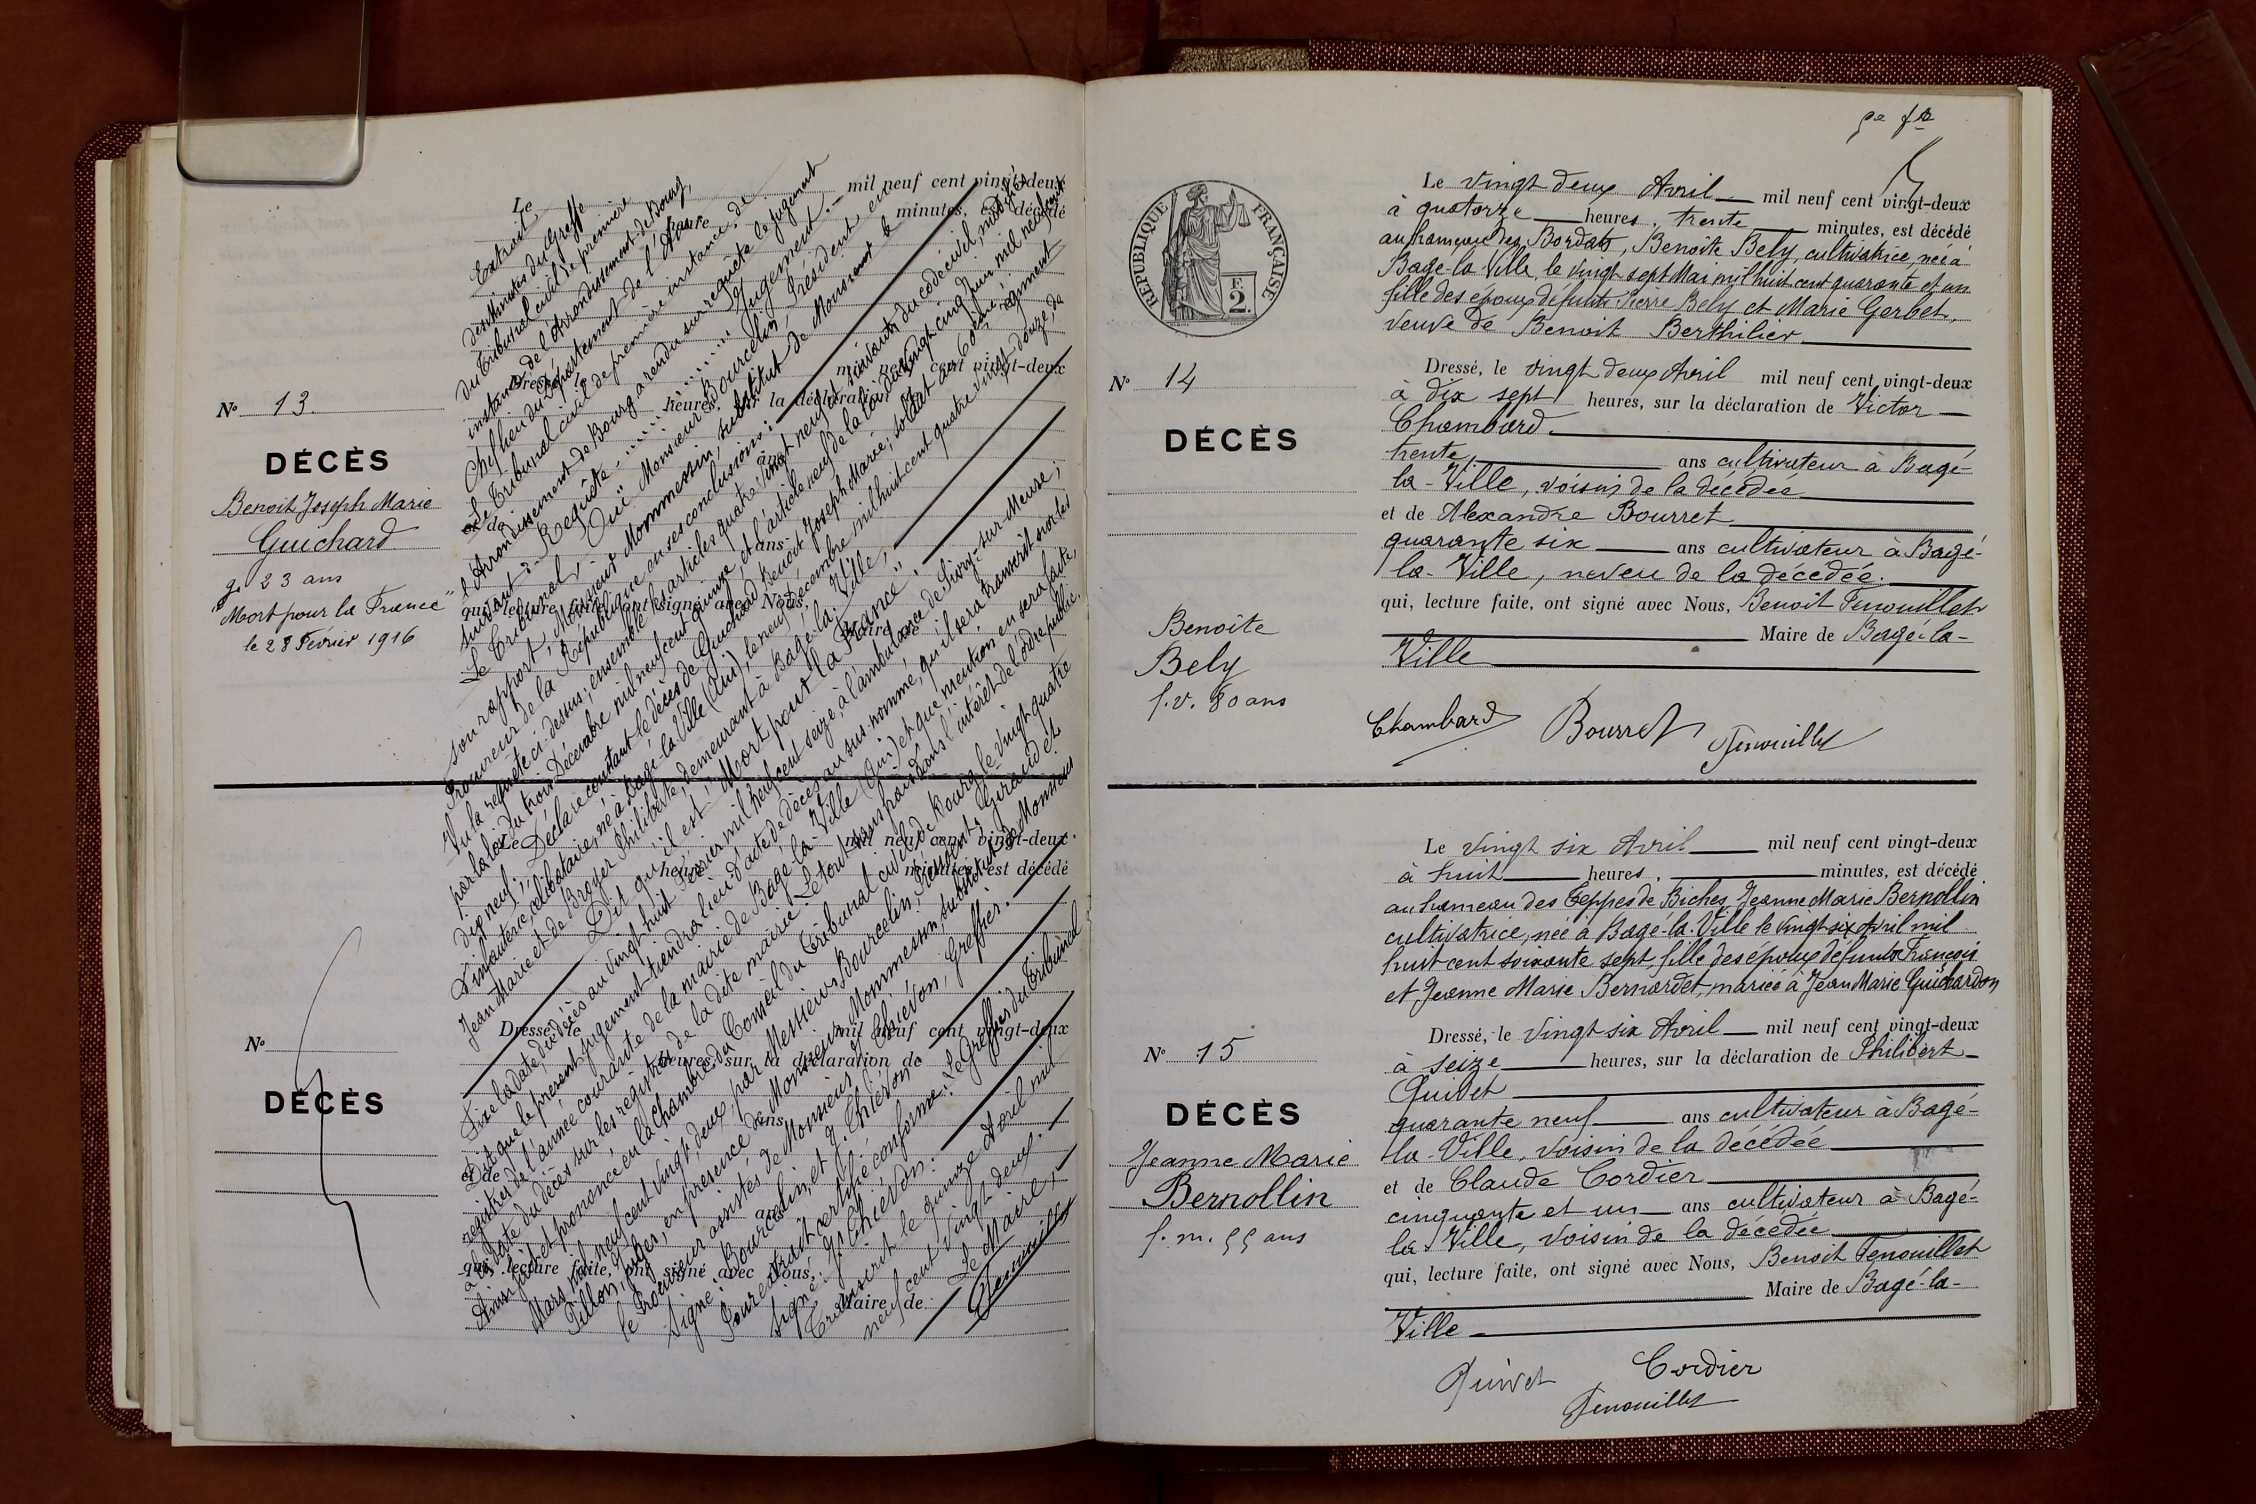 Nº 13.
DÉCÈS
Benoit Joseph Marie
Guichard
g. 23 ans
"Mort pour la France"
le 28 Février 1916
Le mil neuf cent vingt-deux
heure minutes, est décédé
Dressé, le mil neuf cent vingt-deux
heures, sur la déclaration de
ans
et de
ans
qui, lecture faite, ont signé avec Nous,
Maire de
Extrait
des Minutes du Greffe
du Tribunal civil de première
instance de l'Arrondissement de Bourg,
Chef lieu du Département de l'Ain
Le Tribunal civil de première instance, de
l'Arrondissement de Bourg a rendu sur requête le jugement
suivant: Requête Jugement.
Le Tribunal, Ouï Monsieur Bourcelin, Président en
son rapport, Monsieur Mommessin, substitut de Monsieur le
Procureur de la République en ses conclusions;
Vu la requête ci-dessus, ensemble les articles quatre vingt neuf et suivants du code civil, modifiés
par la loi du trois Décembre mil neuf cent quinze et l'article neuf de la loi du vingt cinq Juin mil neuf cent
dix neuf; Déclare constant le décès de Guichard Benoit Joseph Marie, soldat au 60ème régiment
d'infanterie, célibataire, né à Bagé-la-Ville (Ain), le neuf Décembre mil huit cent quatre vingt douze, de
Jean Marie et de Broyer Philiberte, demeurant à Bagé-la-Ville;
Dit qu'il est "Mort pour la France",
Fixe la date du décès au vingt huit Février mil neuf cent seize, à l'ambulance de Sivry-sur-Meuse;
Dit que le présent jugement tiendra lieu d'acte de décès au sus-nommé, qu'il sera transcrit sur les
registres de l'année courante de la mairie de Bagé-la-Ville (Ain) et que mention en sera faite
à la date du décès sur les registres de la dite mairie. Le tout sans frais dans l'intérêt de l'ordre public.
Ainsi fait et prononcé en la Chambre du Conseil du Tribunal civil de Bourg le vingt quatre
Mars mil neuf cent vingt deux, par Messieurs Bourcelin, Président, Giraud et
Tillon, juges, en présence de Monsieur Mommessin, substitut de Monsieur
le Procureur assistés de Monsieur Thiévon, Greffier.
Signé: Bourcelin et J. Thiévon
Pour extrait certifié conforme: Le Greffier du Tribunal
signé: J. Thiévon:
Transcrit le quinze Avril mil
neuf cent vingt deux.
Le Maire,
Fenouillet
Nº
DÉCÈS
Le mil neuf cent vingt-deux
heures minutes, est décédé
Dressé, le mil neuf cent vingt-deux
heures, sur la déclaration de
ans
et de
ans
qui, lecture faite, ont signé avec Nous,
Maire de
RÉPUBLIQUE FRANÇAISE
F.
2.
Nº 14
DÉCÈS
Benoite
Bely
f. v. 80 ans
Le vingt deux Avril mil neuf cent vingt-deux
à quatorze heures, trente minutes, est décédé
au hameau des Bordats, Benoite Bely, cultivatrice, née à
Bagé-la-Ville, le vingt sept Mai mil huit cent quarante et un
fille des époux défunts Pierre Bely et Marie Gerbet,
veuve de Benoit Berthilier
Dressé, le vingt deux Avril mil neuf cent vingt-deux
à dix sept heures, sur la déclaration de Victor
Chambard
trente, ans cultivateur à Bagé-
la-Ville, voisin de la décédée
et de Alexandre Bourret
quarante six ans cultivateur à Bagé-
la-Ville, neveu de la décédée.
qui, lecture faite, ont signé avec Nous, Benoit Fenouillet
Maire de Bagé-la-
Ville
Chambard Bourret Fenouillet
Nº 15
DÉCÈS
Jeanne Marie
Bernollin
f. m. 55 ans
Le vingt six Avril mil neuf cent vingt-deux
à huit heures, minutes, est décédé
au hameau des Teppes de Biches, Jeanne Marie Bernollin
cultivatrice, née à Bagé-la-Ville le vingt six Avril mil
huit cent soixante sept, fille des époux défunts François
et Jeanne Marie Bernardet, mariée à Jean Marie Guichardon
Dressé, le vingt six Avril mil neuf cent vingt-deux
à seize heures, sur la déclaration de Philibert
Quivet
quarante neuf ans cultivateur à Bagé-
la-Ville, voisin de la décédée
et de Claude Cordier
cinquante et un ans cultivateur à Bagé-
la-Ville, voisin de la décédée
qui, lecture faite, ont signé avec Nous, Benoit Fenouillet
Maire de Bagé-la-
Ville
Quivet Cordier
Fenouillet